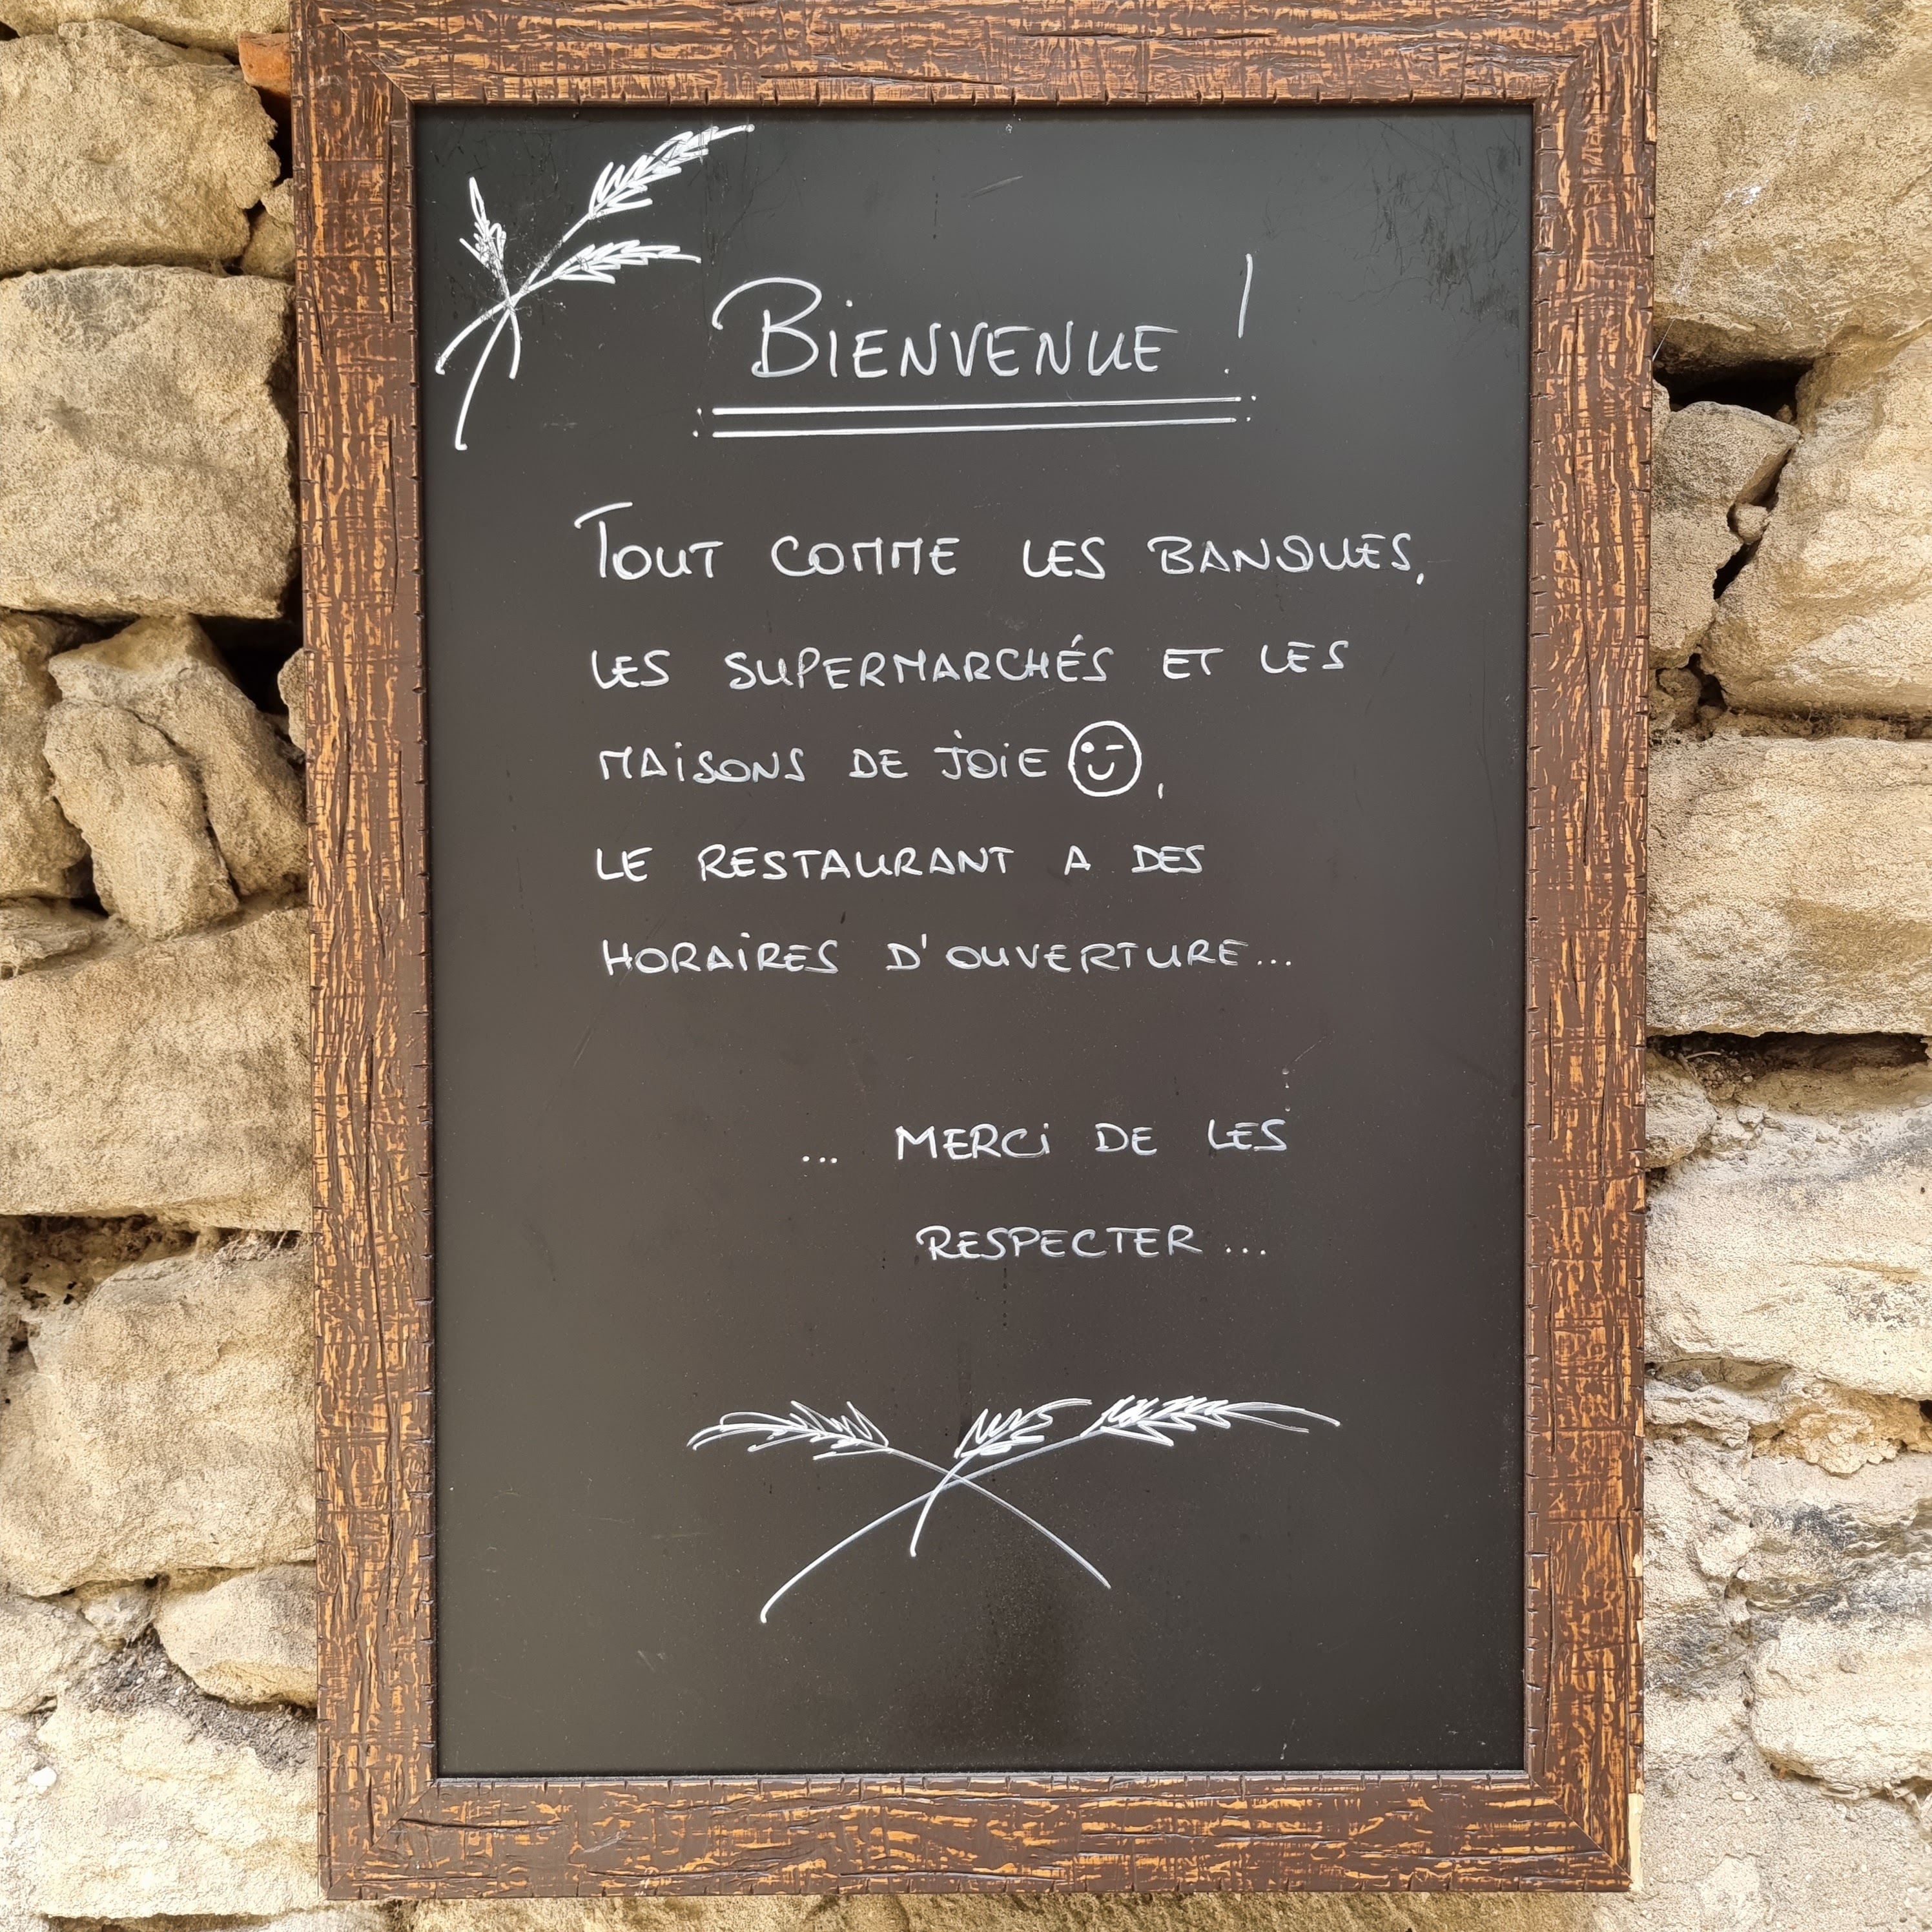 Bienvenue !
Tout comme les banques,
les supermarchés et les
maisons de joie 😉,
le restaurant a des
horaires d'ouverture...
... merci de les
respecter...